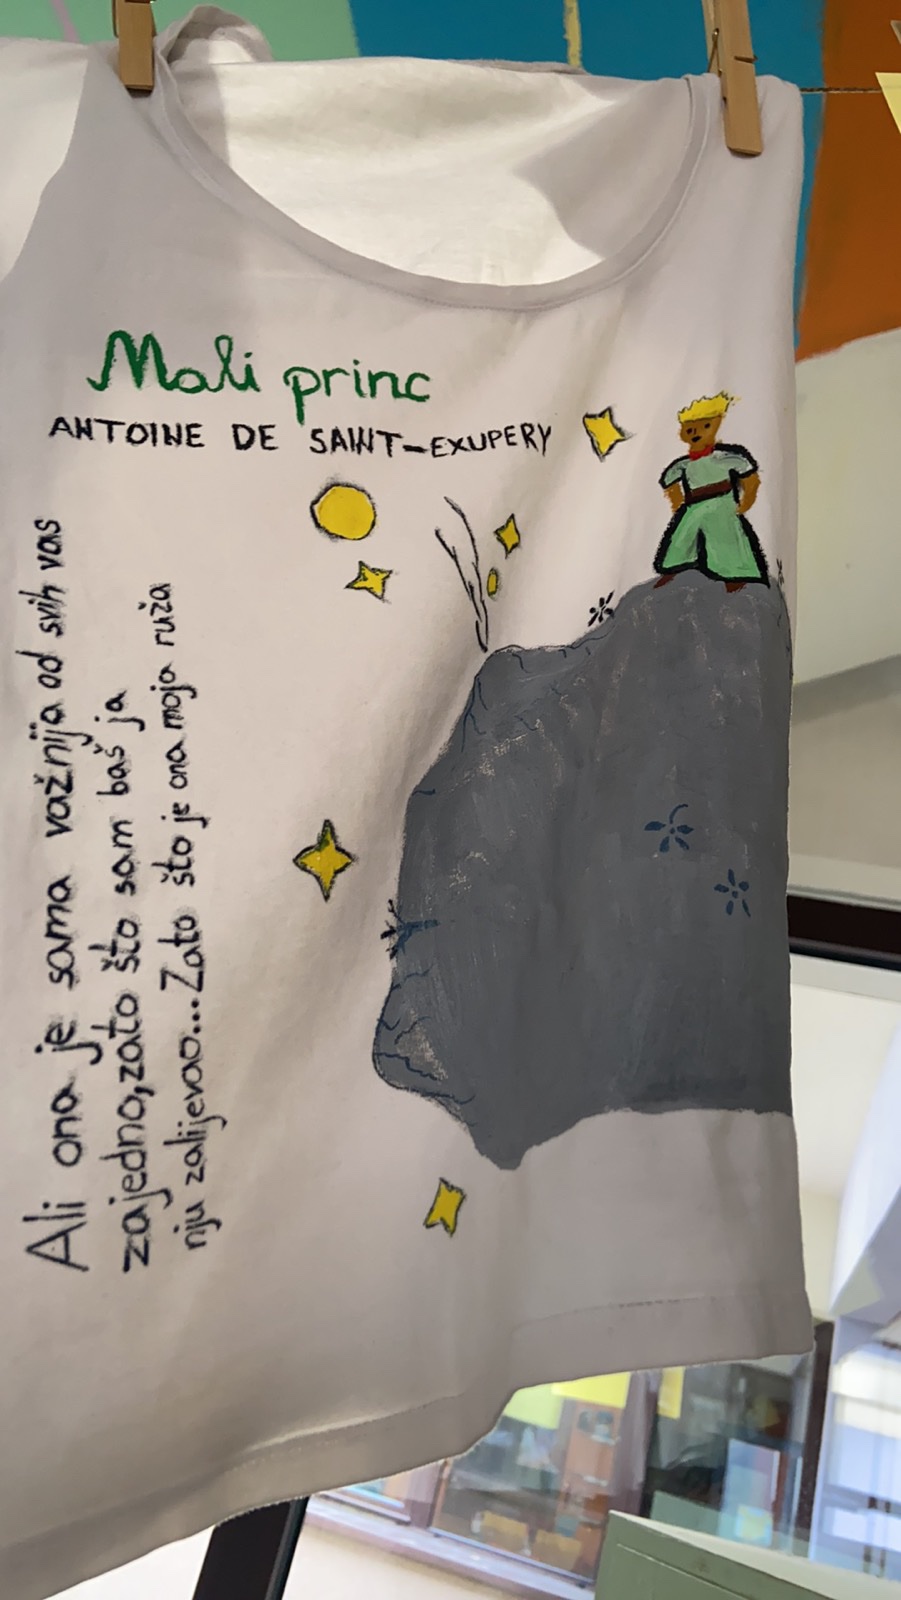 Mali princ
ANTOINE DE SAINT-EXUPERY
Ali ona je sama važnija od svih vas
zajedno, zato što sam baš ja
nju zalijevao...Zato što je ona moja ruža